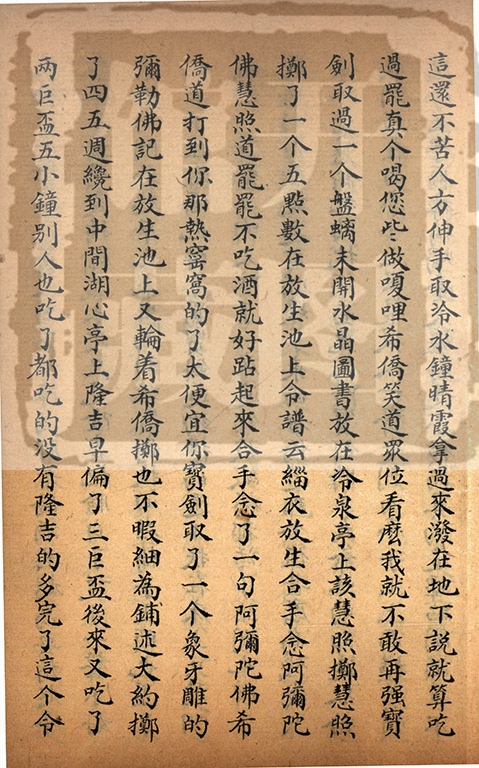 這還不苦人方伸手取冷水鐘晴霞拿過來潑在地下説就算吃
過罷真个喝您些做嗄哩希僑笑道眾位看麽我就不敢再强寶
劍取過一个盤螭未開水晶圖書放在冷泉亭上該慧照擲慧照
擲了一个五點數在放生池上令譜云緇衣放生合手念阿彌陀
佛慧照道罷罷不吃酒就好跕起來合手念了一句阿彌陀佛希
僑道打到你那熱窰窩的了太便宜你寶劍取了一个象牙雕的
彌勒佛記在放生池上又輪着希僑擲也不暇細為鋪述大約擲
了四五週纔到中間湖心亭上隆吉早偏了三巨盃後來又吃了
两巨盃五小鐘别人也吃了都吃的没有隆吉的多完了這个令